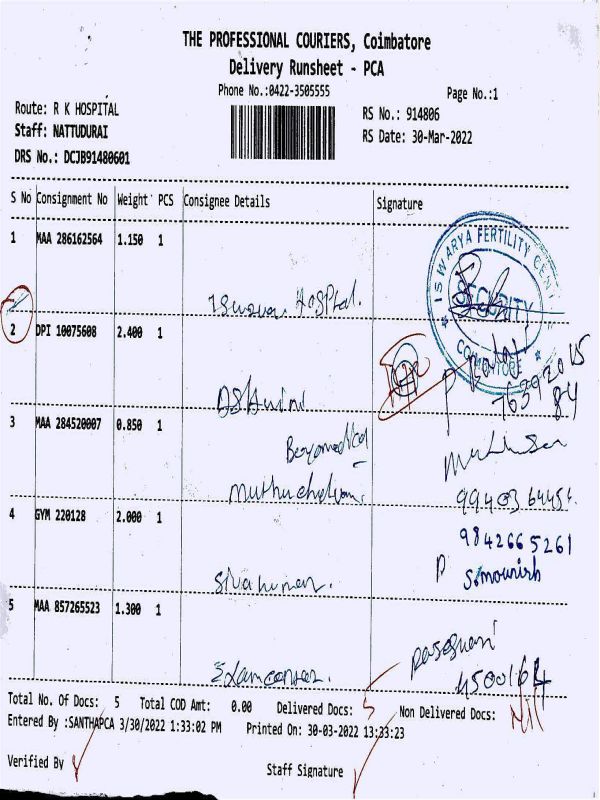 THE PROFESSIONAL COURIERS, Coimbatore
Delivery Runsheet - PCA
Phone No.:0422-3505555
Page No.:1
Route: R K HOSPITAL
RS No.: 914806
Staff: NATTUDURAI
RS Date: 30-Mar-2022
DRS No.: DCJB91480601
S No Consignment No Weight PCS Consignee Details Signature
1 MAA 286162564 1.150 1
ISWARYA FERTILITY CENT
SECURITY
COIMBATORE
Hospital.
2 DPI 10075608 2.400 1
76392015
84
AShwini
3 MAA 284520007 0.850 1
99403 64456
4 GYM 220128 2.000 1
9842665261
P S.mounish
Sivakumar.
5 MAA 857265523 1.300 1
4500164
Total No. Of Docs: 5 Total COD Amt: 0.00 Delivered Docs: 5 Non Delivered Docs: Nil
Entered By :SANTHAPCA 3/30/2022 1:33:02 PM Printed On: 30-03-2022 13:33:23
Verified By
Staff Signature